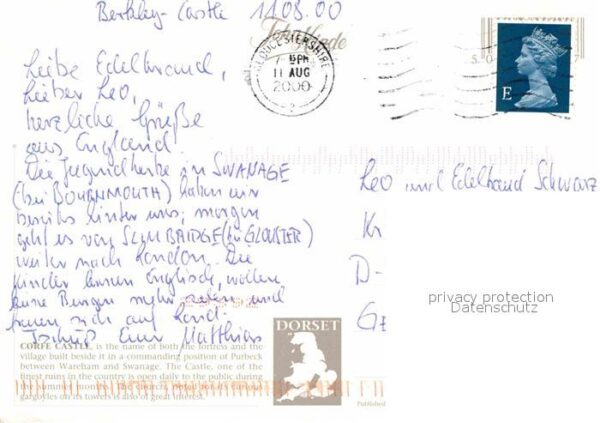 Berkley-Castle 11.08.00
John Hinde
GLOUCESTERSHIRE
PM
11 AUG
2000
E
Liebe Edeltraud,
Lieber Leo,
herzliche Grüße
aus England!
Die Jugendherbe in SWANAGE
(bei BOURNMOUTH) haben wir
bereits hinter uns, morgen
geht es von SLIMBRIDGE (bei GLOUSTER)
weiter nach London. Die
Kinder lernen Englisch, wollen
keine Burgen mehr sehen und
freuen sich auf
Tschüß Euer Matthias
Leo und Edeltraud Schwarz
Kr
D-
privacy protection
Datenschutz
DORSET
CORFE CASTLE, is the name of both the fortress and the
village built beside it in a commanding position of Purbeck
between Wareham and Swanage. The Castle, one of the
finest ruins in the country is open daily to the public during
the summer from the church, noted for its various
gargoyles on its towers is also of great interest.
Published